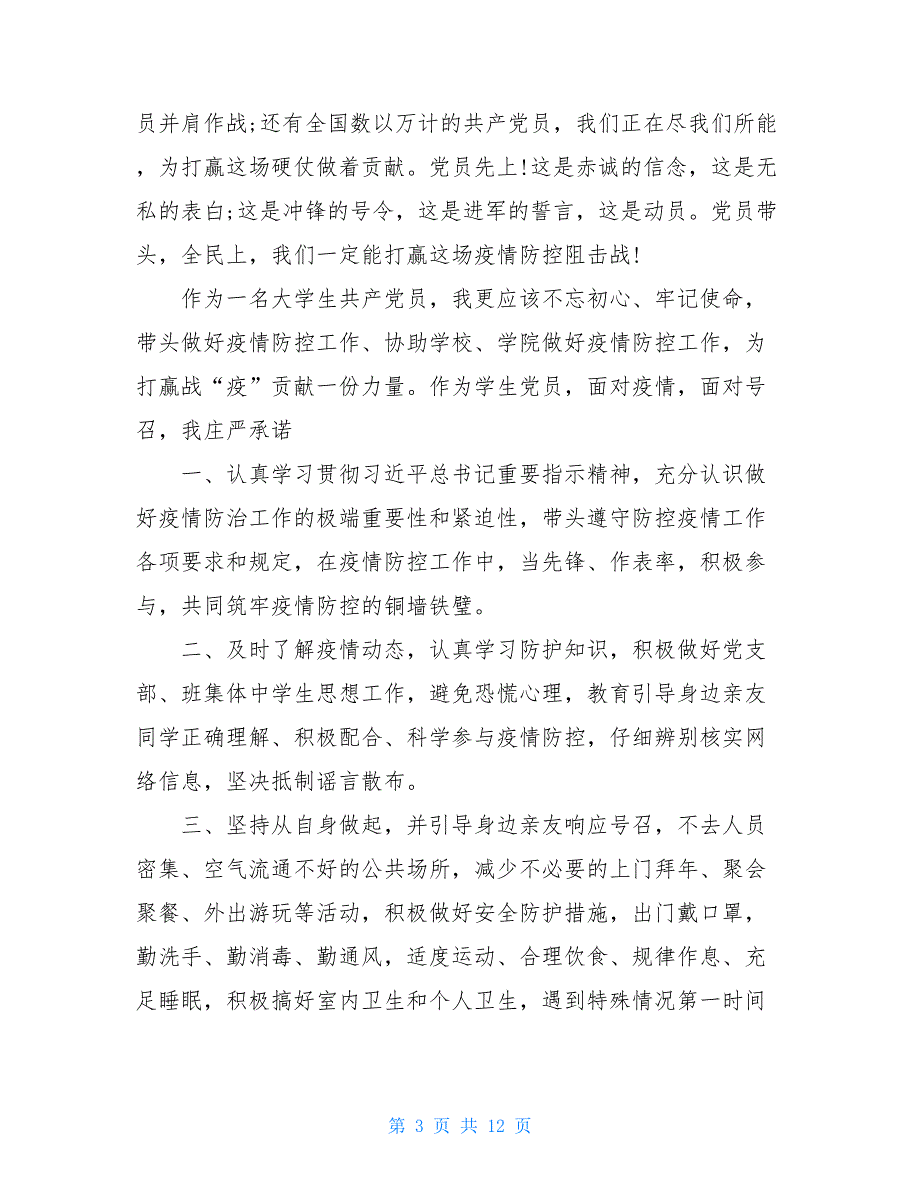 员并肩作战;还有全国数以万计的共产党员，我们正在尽我们所能
，为打赢这场硬仗做着贡献。党员先上!这是赤诚的信念，这是无
私的表白;这是冲锋的号令，这是进军的誓言，这是动员。党员带
头，全民上，我们一定能打赢这场疫情防控阻击战!
作为一名大学生共产党员，我更应该不忘初心、牢记使命，
带头做好疫情防控工作、协助学校、学院做好疫情防控工作，为
打赢战“疫”贡献一份力量。作为学生党员，面对疫情，面对号
召，我庄严承诺
一、认真学习贯彻习近平总书记重要指示精神，充分认识做
好疫情防治工作的极端重要性和紧迫性，带头遵守防控疫情工作
各项要求和规定，在疫情防控工作中，当先锋、作表率，积极参
与，共同筑牢疫情防控的铜墙铁璧。
二、及时了解疫情动态，认真学习防护知识，积极做好党支
部、班集体中学生思想工作，避免恐慌心理，教育引导身边亲友
同学正确理解、积极配合、科学参与疫情防控，仔细辨别核实网
络信息，坚决抵制谣言散布。
三、坚持从自身做起，并引导身边亲友响应号召，不去人员
密集、空气流通不好的公共场所，减少不必要的上门拜年、聚会
聚餐、外出游玩等活动，积极做好安全防护措施，出门戴口罩，
勤洗手、勤消毒、勤通风，适度运动、合理饮食、规律作息、充
足睡眠，积极搞好室内卫生和个人卫生，遇到特殊情况第一时间
第 3 页 共 12 页